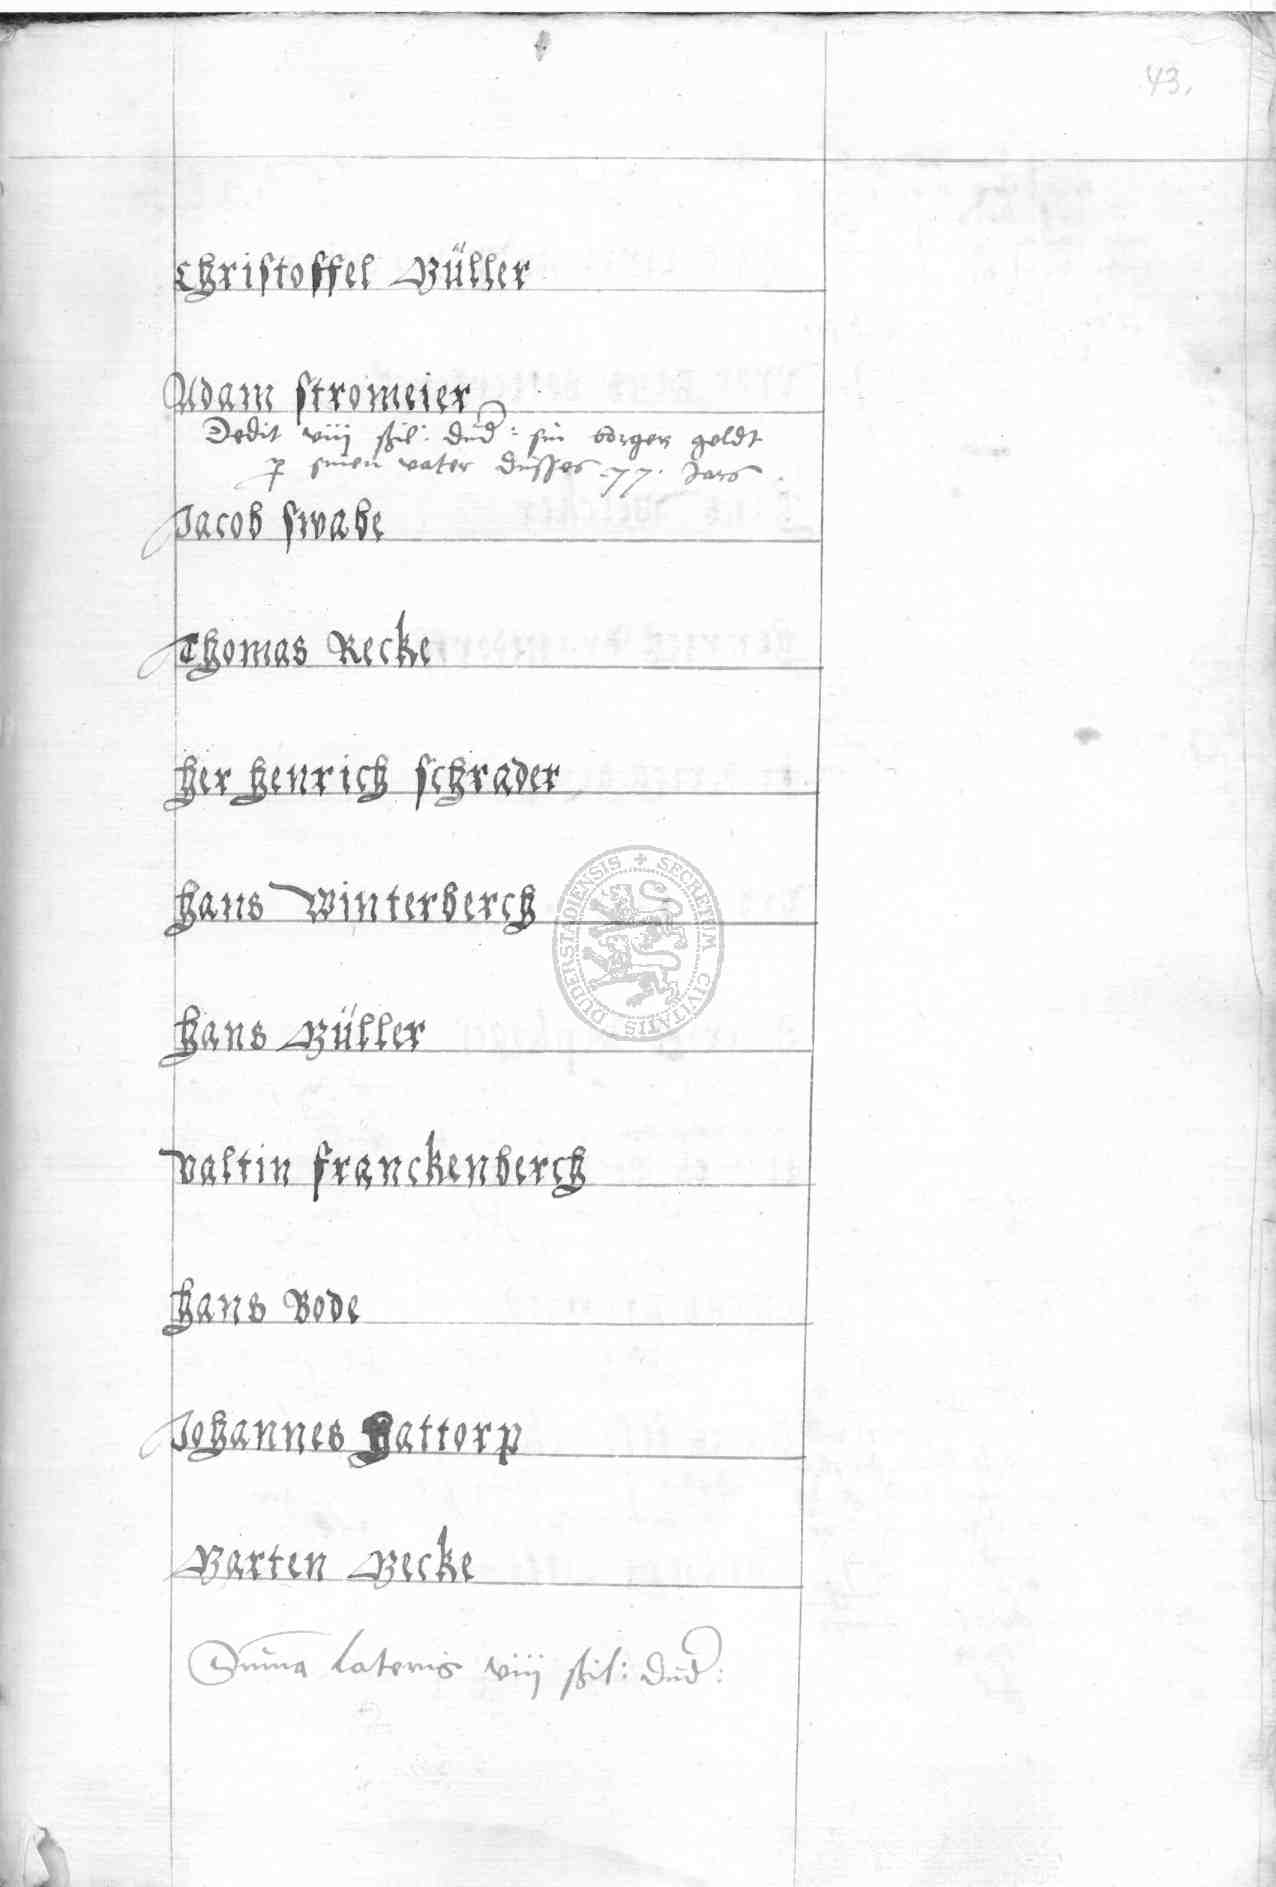 43.
Christoffel Müller
Adam Stromeier
Dedit viij ßil: dud: sin borger geldt
p sinen vater dusses 77. Jars
Jacob Swabe
Thomas Recke
Her Henrich Schrader
Hans Winterberch
Hans Müller
Valtin Franckenberch
Hans Bode
Johannes Hattorp
Marten Mecke
Suma lateris viij ßil: dud:
SECRETUM CIVITATIS DUDERSTADIENSIS